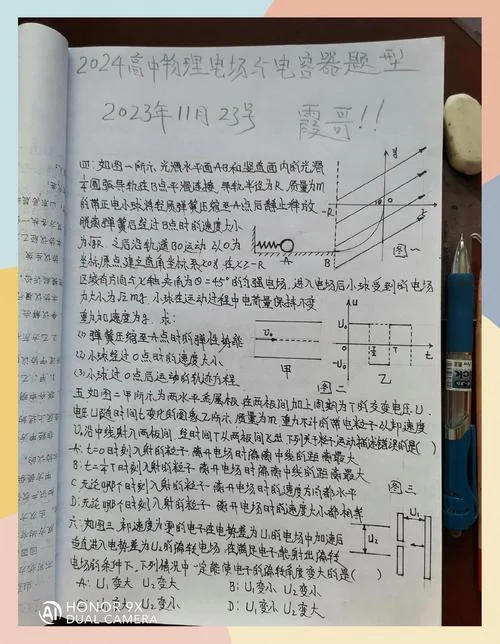 2024高中物理电场个电容器题型
2023年11月23号 霞哥!!
四:如图一所示,光滑水平面AB和竖直面内的光滑
1/4圆弧导轨在B点平滑连接,导轨半径为R,质量为m
的带正电小球将轻质弹簧压缩至A点后静止释放
脱离弹簧后经过B点时的速度大小
为√gR,之后沿轨道BO运动,以O为
坐标原点建立直角坐标系xOy,在x≥-R
区域有方向与x轴夹角为θ=45°的匀强电场,进入电场后小球受到的电场
力大小为√2mg,小球在运动过程中电荷量保持不变
重力加速度为g,求:
(1)弹簧压缩至A点时的弹性势能
(2)小球经过O点时的速度大小
(3)小球过O点后运动的轨迹方程
y
O
x
-R
A
B
图一
v₀
甲
u
U₀
O
-U₀
T/2
T
t
乙
图二
五:如图二甲所示为两水平金属板,在两板间加上周期为T的交变电压U,
电压U随时间t变化的图象乙所示,质量为m重力不计的带电粒子以初速度
v₀沿中线射入两板间,经时间T从两板间飞出,下列关于粒子运动描述错误的是( )
A:t=0时刻入射的粒子,离开电场时偏离中线的距离最大
B:t=1/4T时刻入射的粒子,离开电场时偏离中线的距离最大
C:无论哪个时刻入射的粒子,离开电场时的速度方向都水平
D:无论哪个时刻入射的粒子,离开电场时的速度大小都相等
图三
六:如图三,初速度为零的电子在电势差为U₁的电场中加速后
垂直进入电势差为U₂的偏转电场,在满足电子能射出偏转
电场的条件下,下列情况中一定能使电子的偏转角度变大的是( )
U₂
U₁
A:U₁变大 U₂变大 B:U₁变小 U₂变小
U₁变大 U₂变小 D:U₁变小 U₂变大
HONOR 9X
DUAL CAMERA